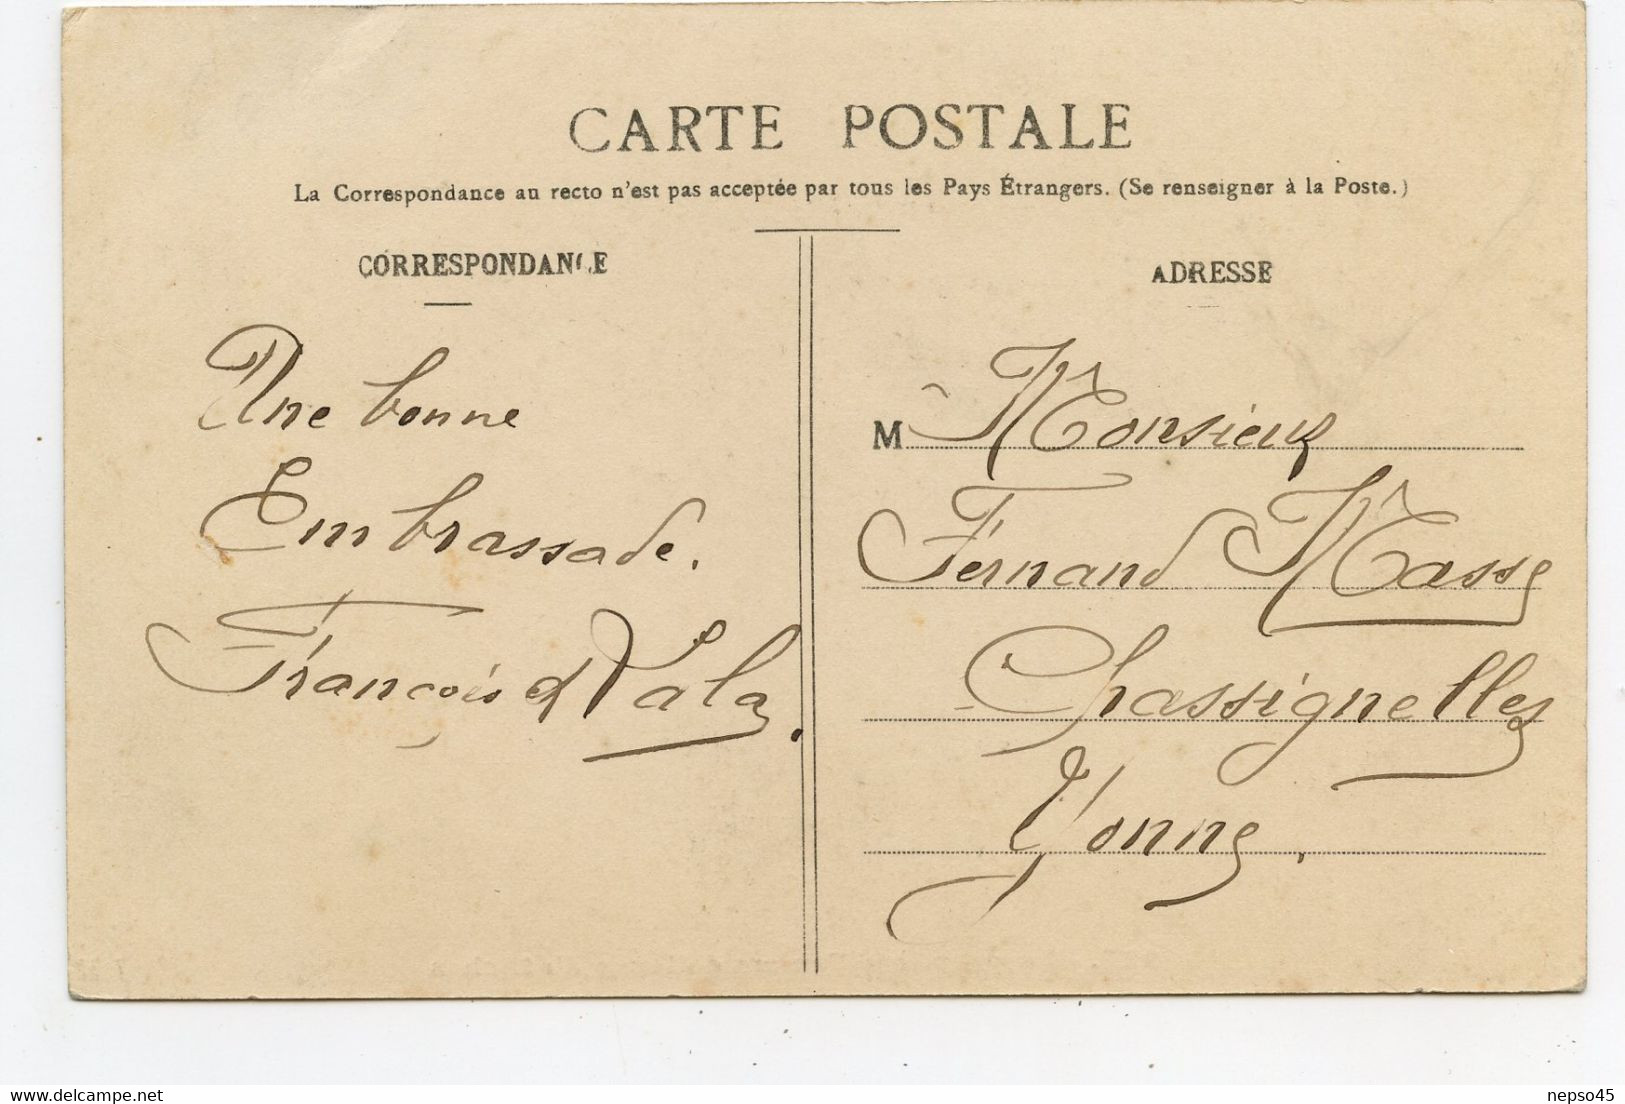 CARTE POSTALE
La Correspondance au recto n'est pas acceptée par tous les Pays Étrangers. (Se renseigner à la Poste.)
CORRESPONDANCE
Une bonne
Embrassade.
François et Lala.
ADRESSE
M Monsieur
Fernand Masse
Chassignelles
Yonne.
www.delcampe.net
nepso45